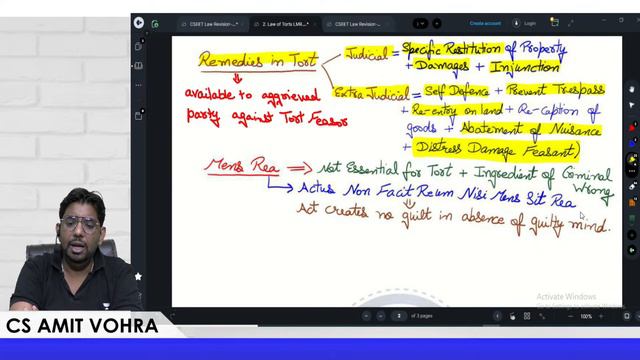 CSEET Law Revision-
2. Law of Torts LMR...
CSEET Law Revision -
Create account
Sign in
Remedies in Tort
Judicial = Specific Restitution of Property
+ Damages + Injunction
available to aggrieved
party against Tort Feasor
Extra Judicial = Self Defence + Prevent Trespass
+ Re-entry on land + Re-caption of
goods + Abatement of Nuisance
+ Distress Damage Feasant)
Mens Rea => Not Essential for Tort + Ingredient of Criminal
Wrong
Actus Non Facit Reum Nisi Mens Sit Rea
Act creates no guilt in absence of guilty mind.
Activate Windows
Go to Settings to activate Windows.
2 of 3 pages
100%
CS AMIT VOHRA